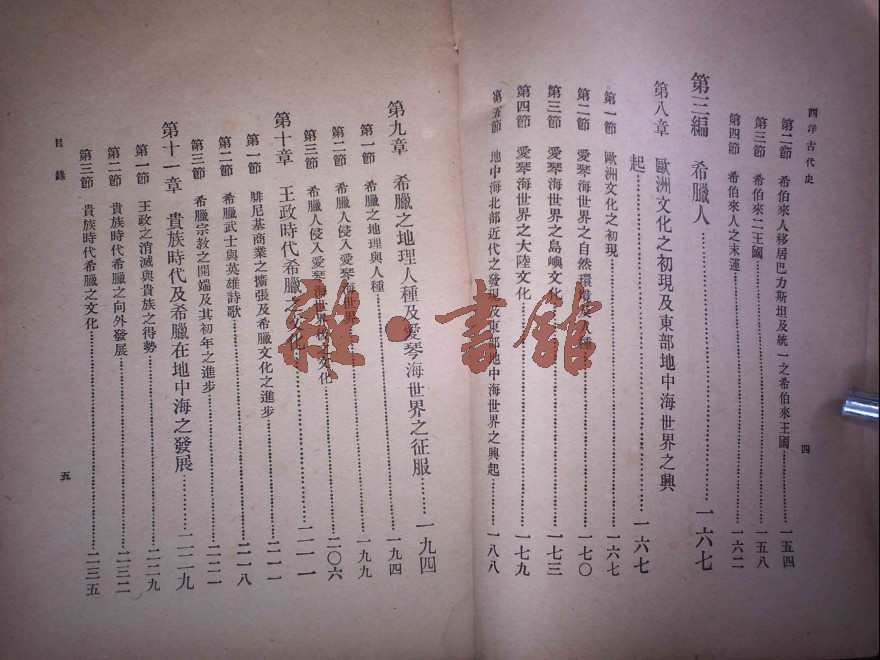 西洋古代史
四
第二節 希伯來人移居巴力斯坦及統一之希伯來王國 一五四
第三節 希伯來二王國 一五八
第四節 希伯來人之末運 一六二
第三編 希臘人 一六七
第八章 歐洲文化之初現及東部地中海世界之興
起 一六七
第一節 歐洲文化之初現 一六七
第二節 愛琴海世界之自然環境及人種 一七〇
第三節 愛琴海世界之島嶼文化 一七三
第四節 愛琴海世界之大陸文化 一七九
第五節 地中海北部近代之發現及東部地中海世界之興起 一八八
第九章 希臘之地理人種及愛琴海世界之征服 一九四
第一節 希臘之地理與人種 一九四
第二節 希臘人侵入愛琴海世界 一九九
第三節 希臘人侵入愛琴海世界後之文化 二〇六
第十章 王政時代希臘之文化 二一一
第一節 腓尼基商業之擴張及希臘文化之進步 二一一
第二節 希臘武士與英雄詩歌 二一八
第三節 希臘宗教之開端及其初年之進步 二二一
第十一章 貴族時代及希臘在地中海之發展 二二九
第一節 王政之消滅與貴族之得勢 二二九
第二節 貴族時代希臘之向外發展 二三二
第三節 貴族時代希臘之文化 二三五
目錄
五
雜·書館